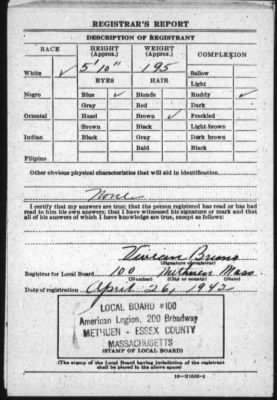 REGISTRAR'S REPORT
DESCRIPTION OF REGISTRANT
RACE HEIGHT (Approx.) WEIGHT (Approx.) COMPLEXION
White ✓ 5' 10" 195 Sallow
Light
EYES HAIR
Negro Blue ✓ Blonde Ruddy ✓
Gray Red Dark
Oriental Hazel Brown ✓ Freckled
Brown Black Light brown
Indian Black Gray Dark brown
Bald Black
Filipino
Other obvious physical characteristics that will aid in identification
None
I certify that my answers are true; that the person registered has read or has had
read to him his own answers; that I have witnessed his signature or mark and that
all of his answers of which I have knowledge are true, except as follows:
Vivian Bruno
(Signature of registrar)
Registrar for Local Board 100 Methuen Mass.
(Number) (City or county) (State)
Date of registration April 26, 1942
LOCAL BOARD #100
American Legion, 200 Broadway
METHUEN - ESSEX COUNTY
MASSACHUSETTS
(STAMP OF LOCAL BOARD)
(The stamp of the Local Board having jurisdiction of the registrant
shall be placed in the above space)
16—21630-1